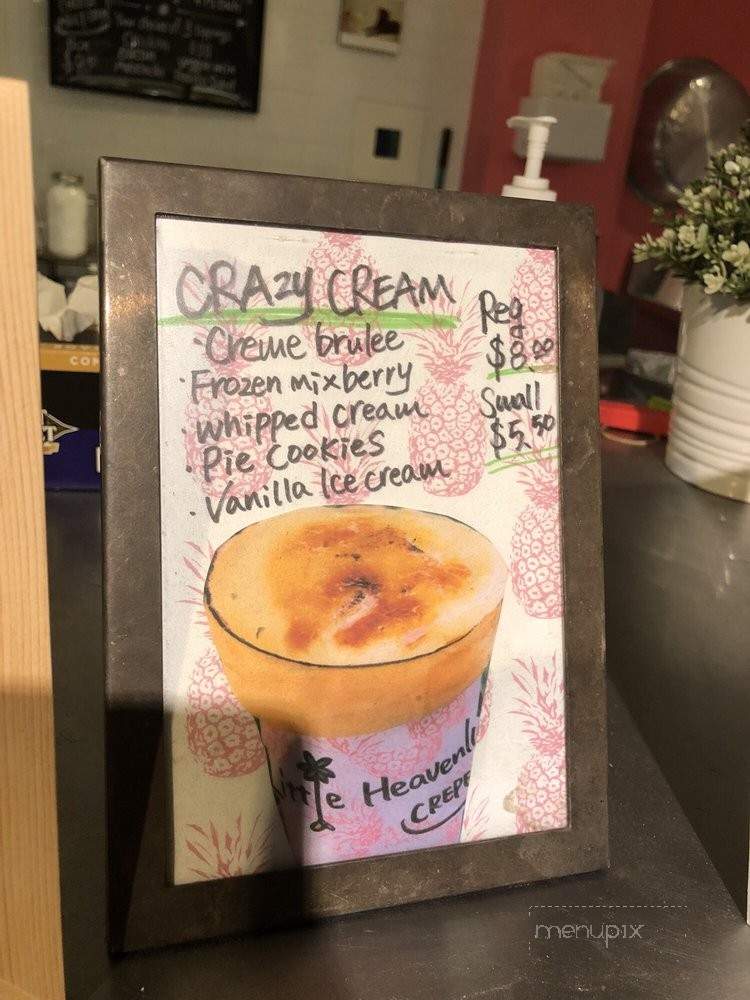 CRAZY CREAM
· Creme brulee
· Frozen mixberry
· whipped cream
· Pie Cookies
· Vanilla Ice cream
Reg
$8.00
Small
$5.50
Little Heavenly
CREPE
menupix